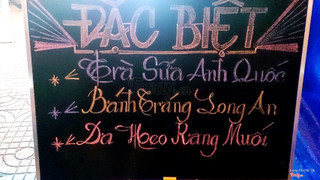 ĐẶC BIỆT
Trà Sữa Anh Quốc
Bánh Tráng Long An
Da Heo Rang Muối